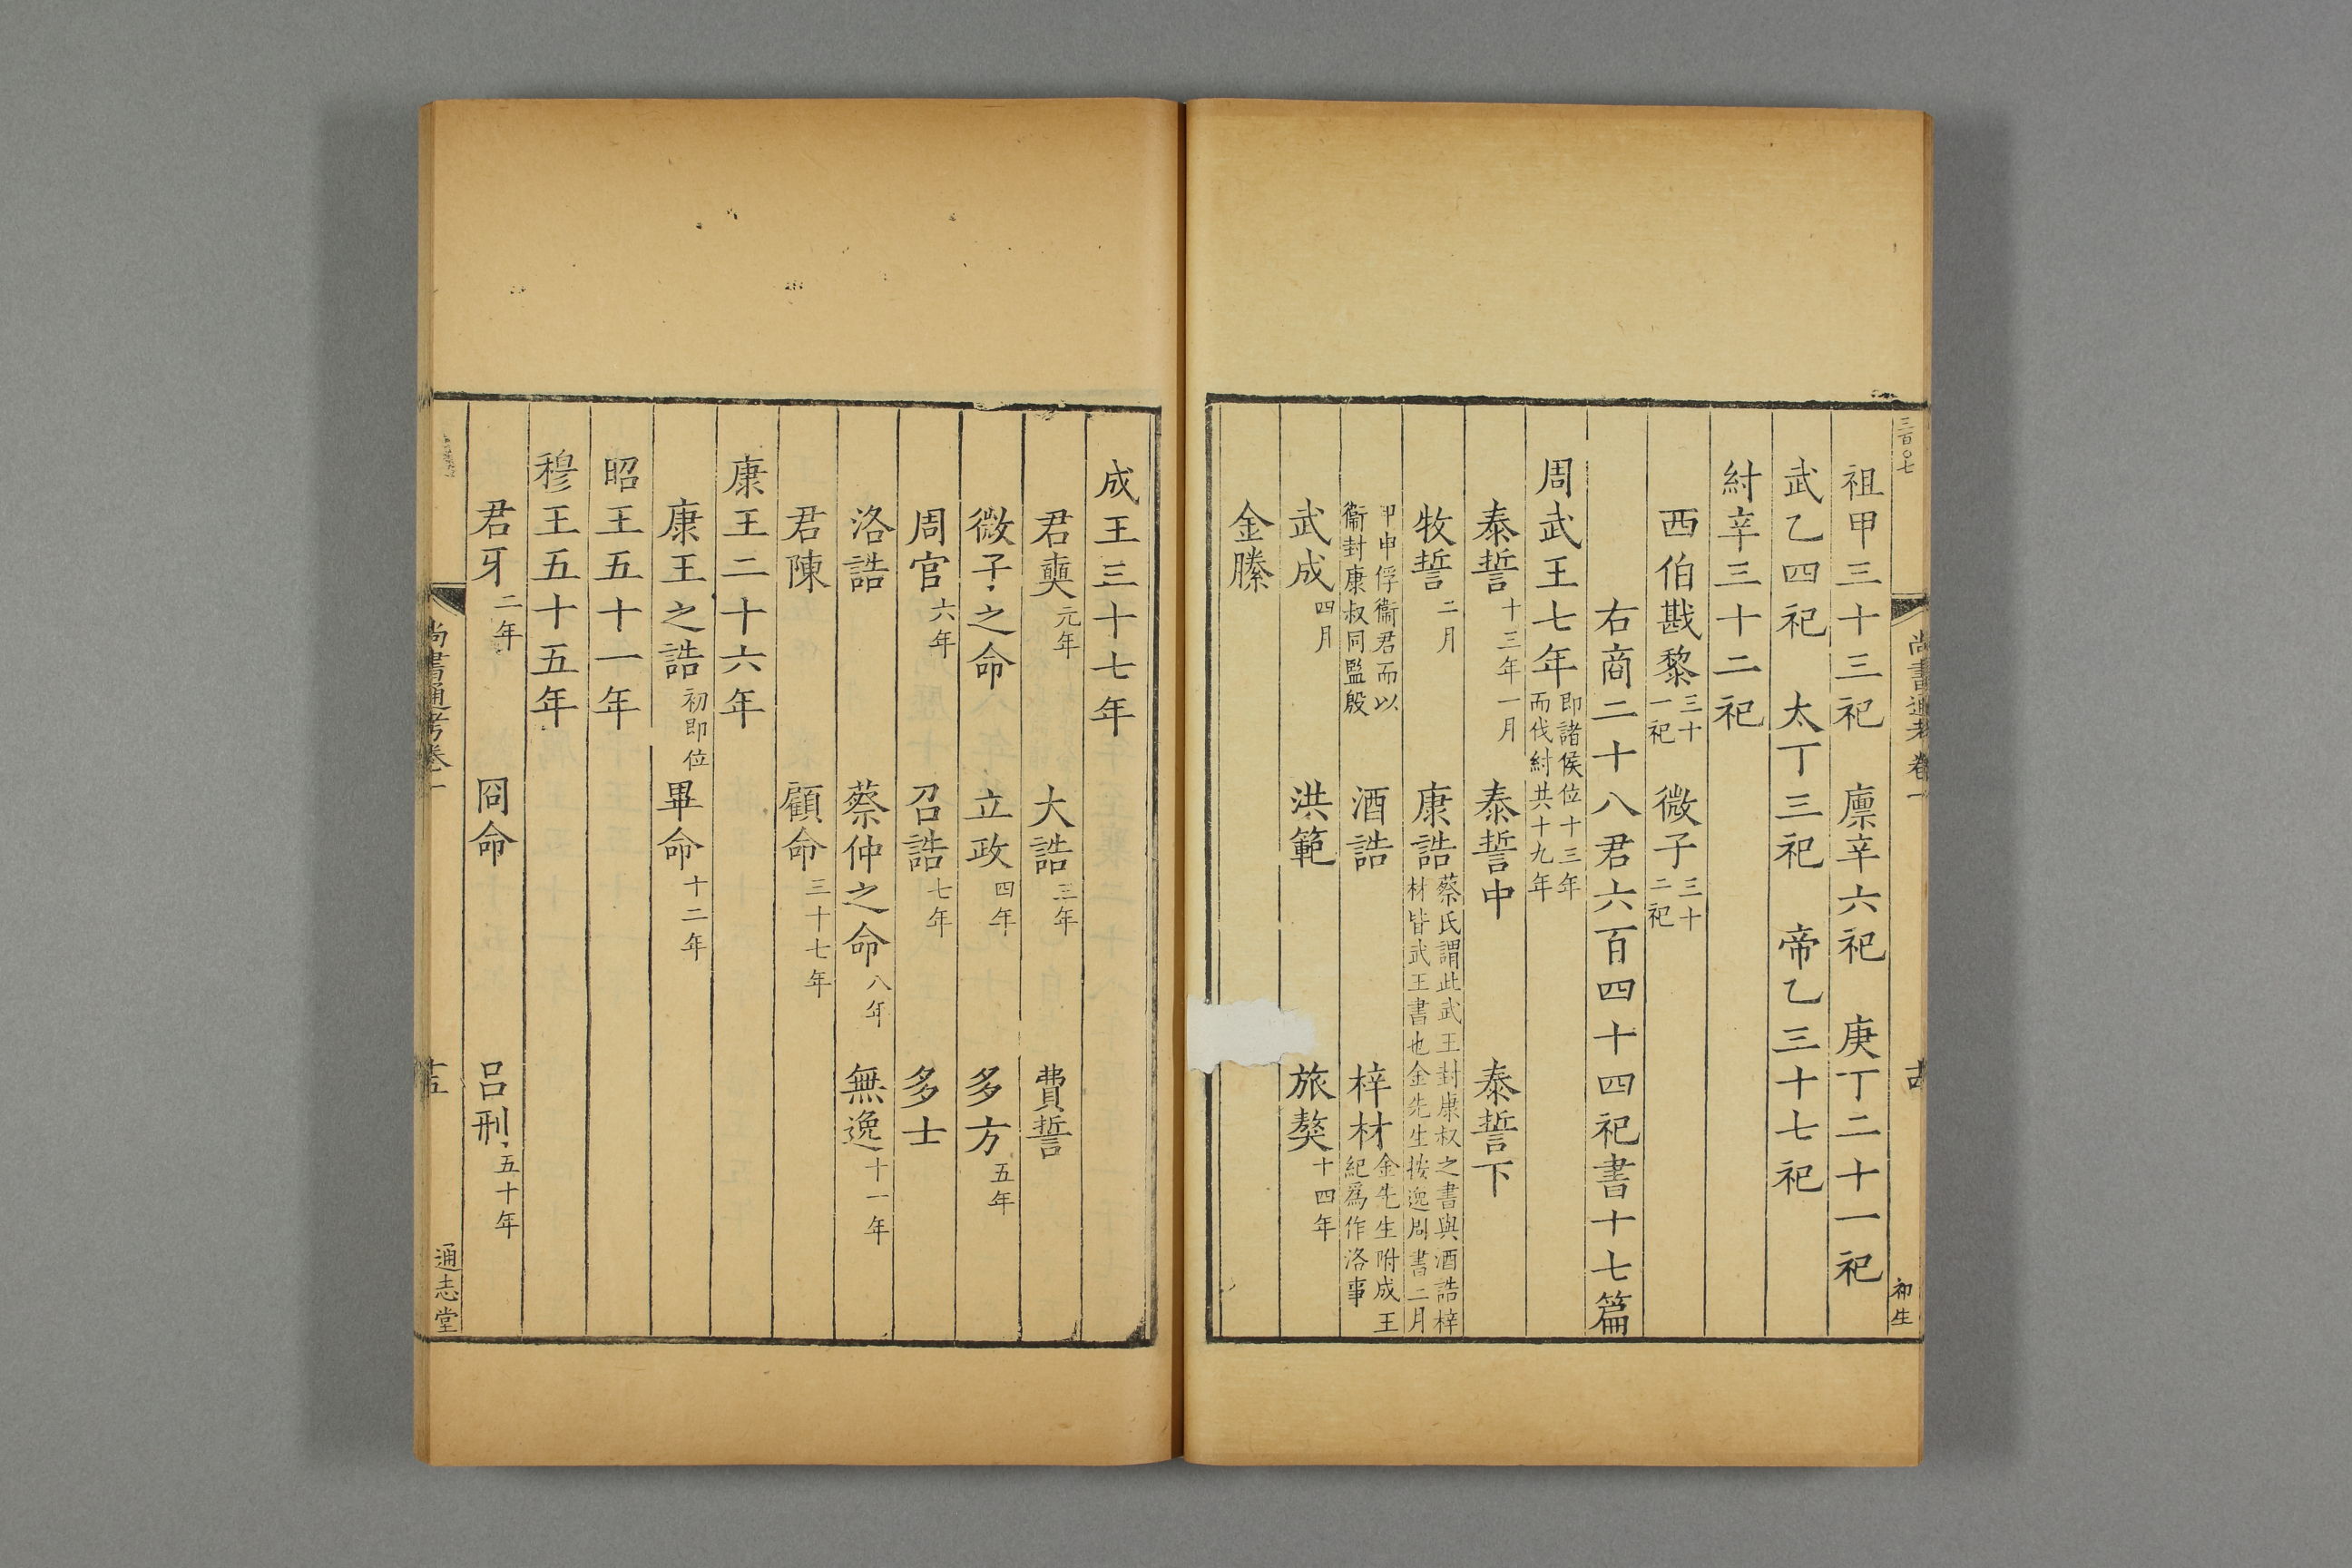 三百〇七
尚書通考卷一
初生
祖甲三十三祀　廪辛六祀　庚丁二十一祀
武乙四祀　太丁三祀　帝乙三十七祀
紂辛三十二祀
西伯戡黎三十一祀　微子三十二祀
右商二十八君六百四十四祀書十七篇
周武王七年即諸侯位十三年而伐紂共十九年
泰誓十三年一月　泰誓中　泰誓下
牧誓二月　康誥蔡氏謂此武王封康叔之書與酒誥梓材皆武王書也金先生按逸周書二月
甲申俘衞君而以衞封康叔同監殷　酒誥　梓材金先生附成王紀爲作洛事
武成四月　洪範　旅獒十四年
金縢
成王三十七年
君奭元年　大誥三年　費誓
微子之命　立政四年　多方五年
周官六年　召誥七年　多士
洛誥　蔡仲之命八年　無逸十一年
君陳　顧命三十七年
康王二十六年
康王之誥初即位　畢命十二年
昭王五十一年
穆王五十五年
君牙二年　冏命　呂刑五十年
尚書通考卷一
十五
通志堂